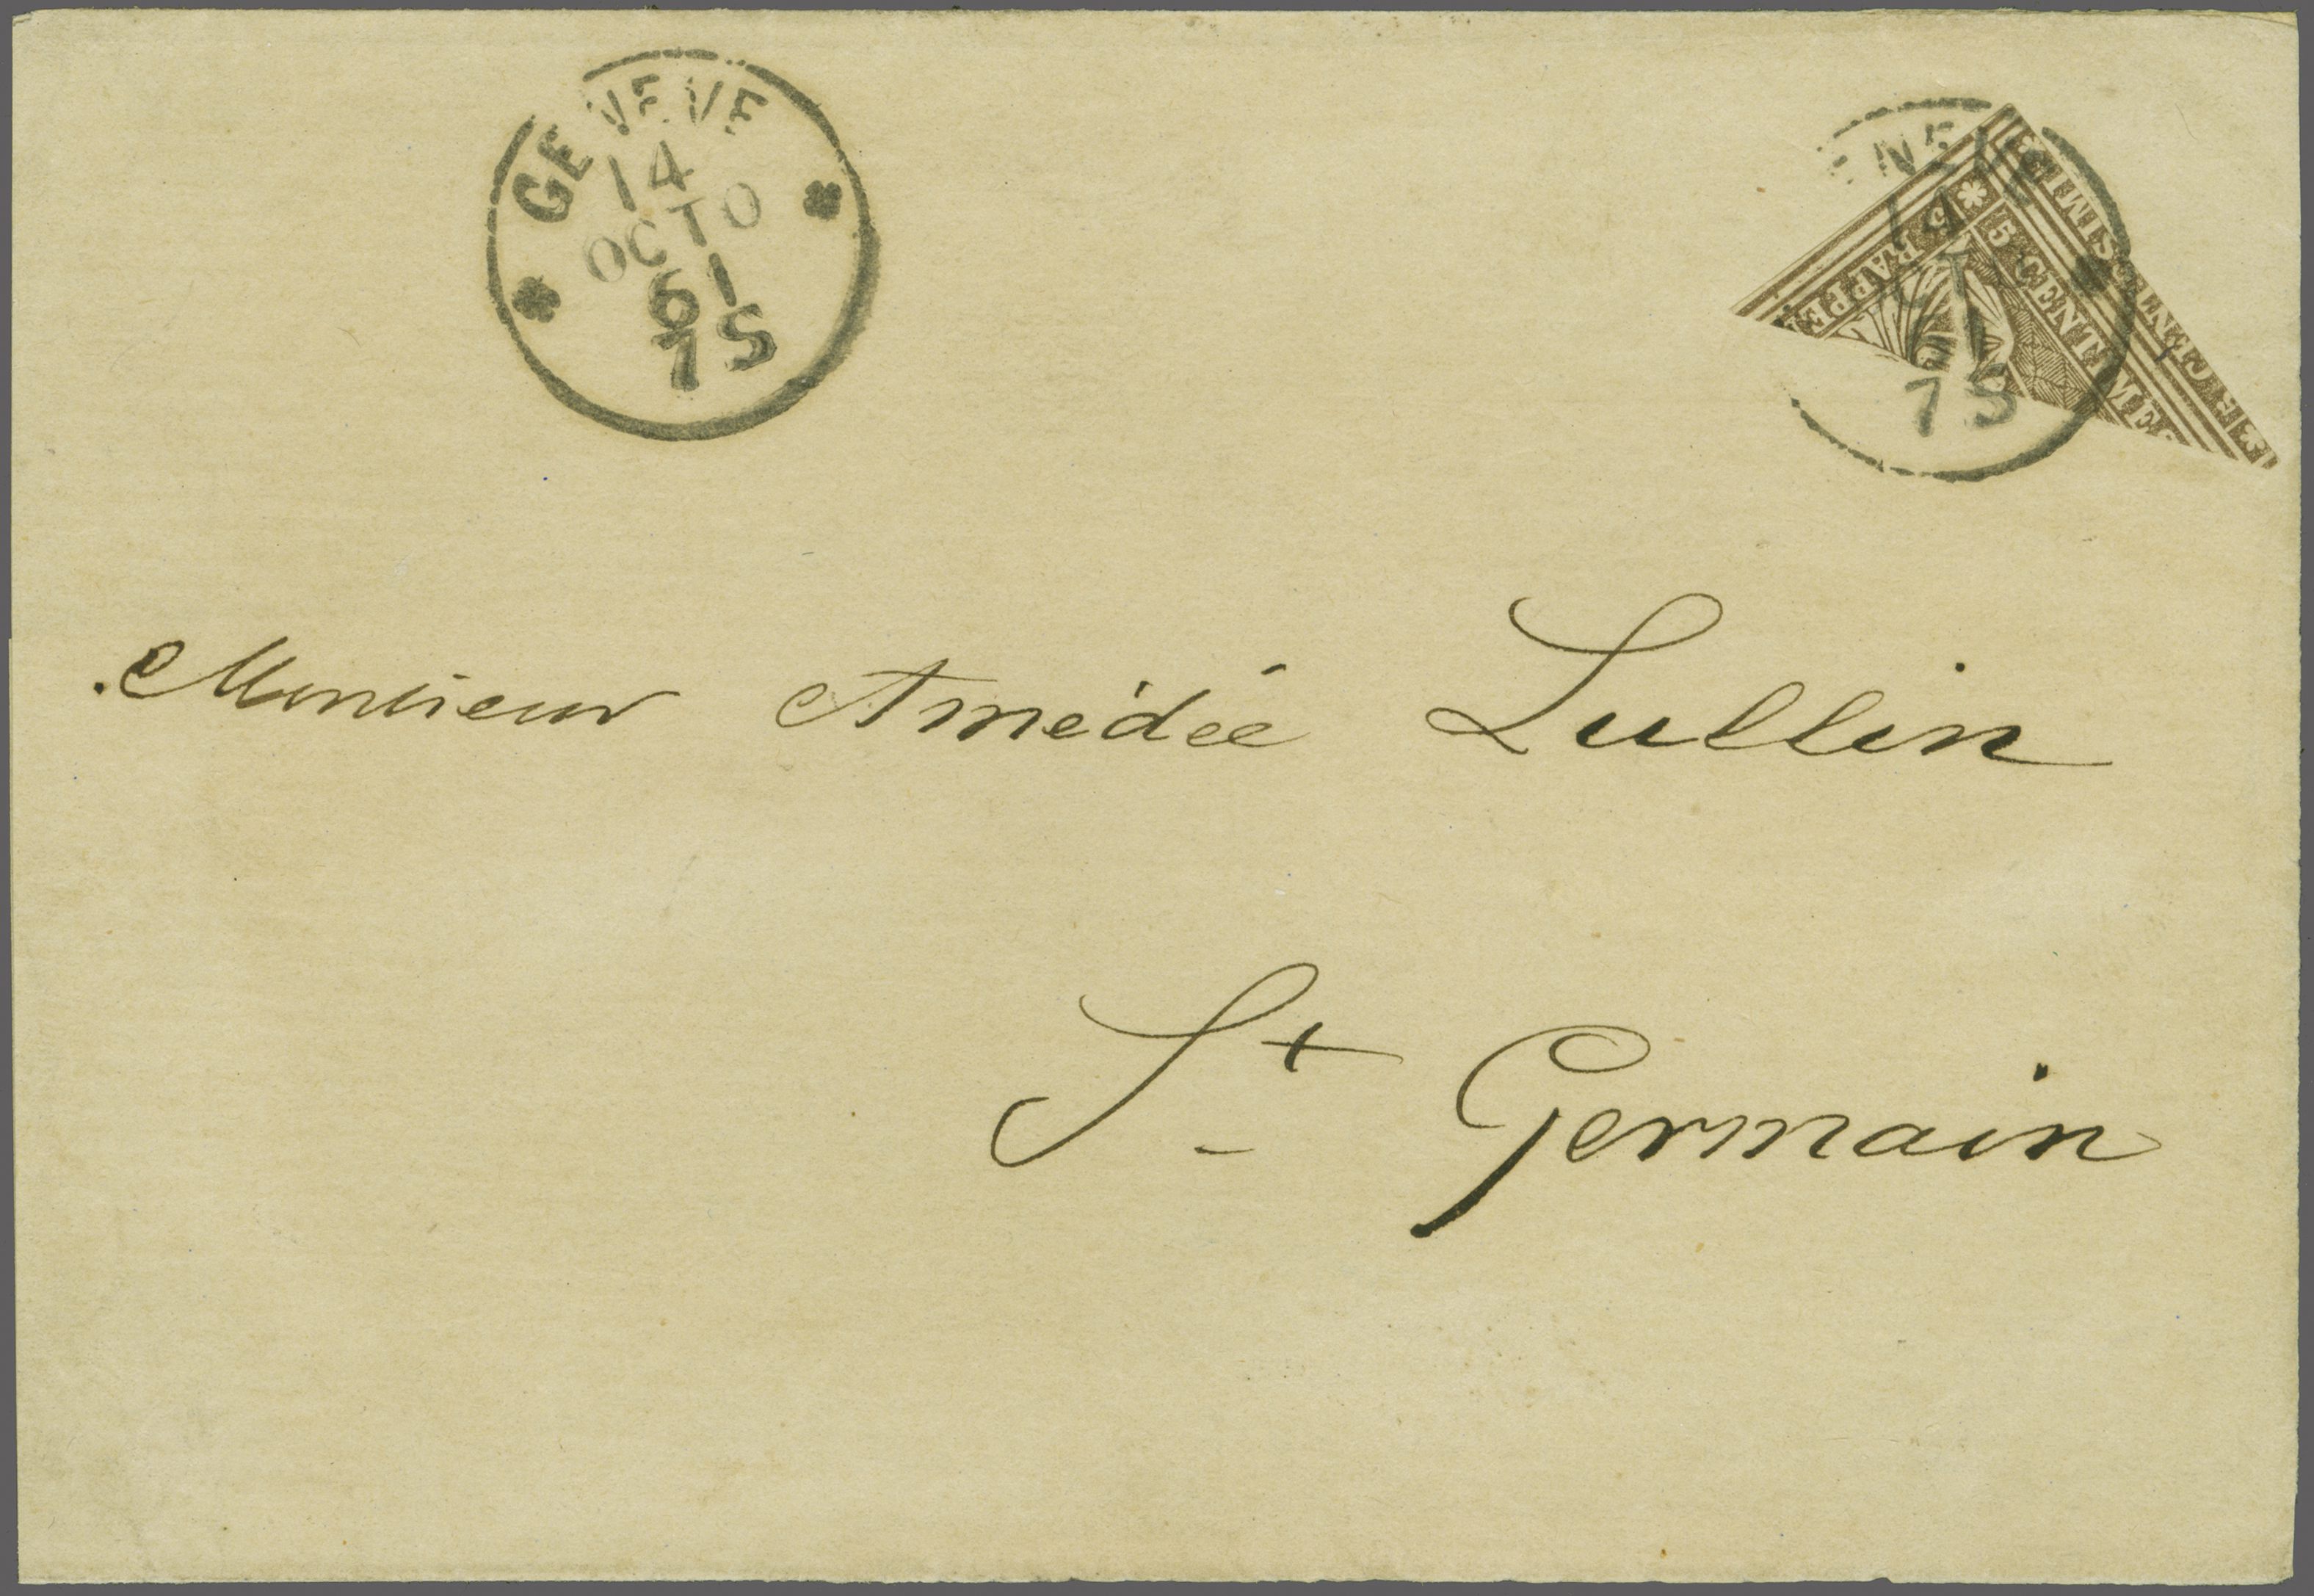 GENEVE
14
OCTO
61
7S
ENEV
14
7S
5 RAPPEN
5 CENTIMES
Monsieur Amédée Lullin
St Germain